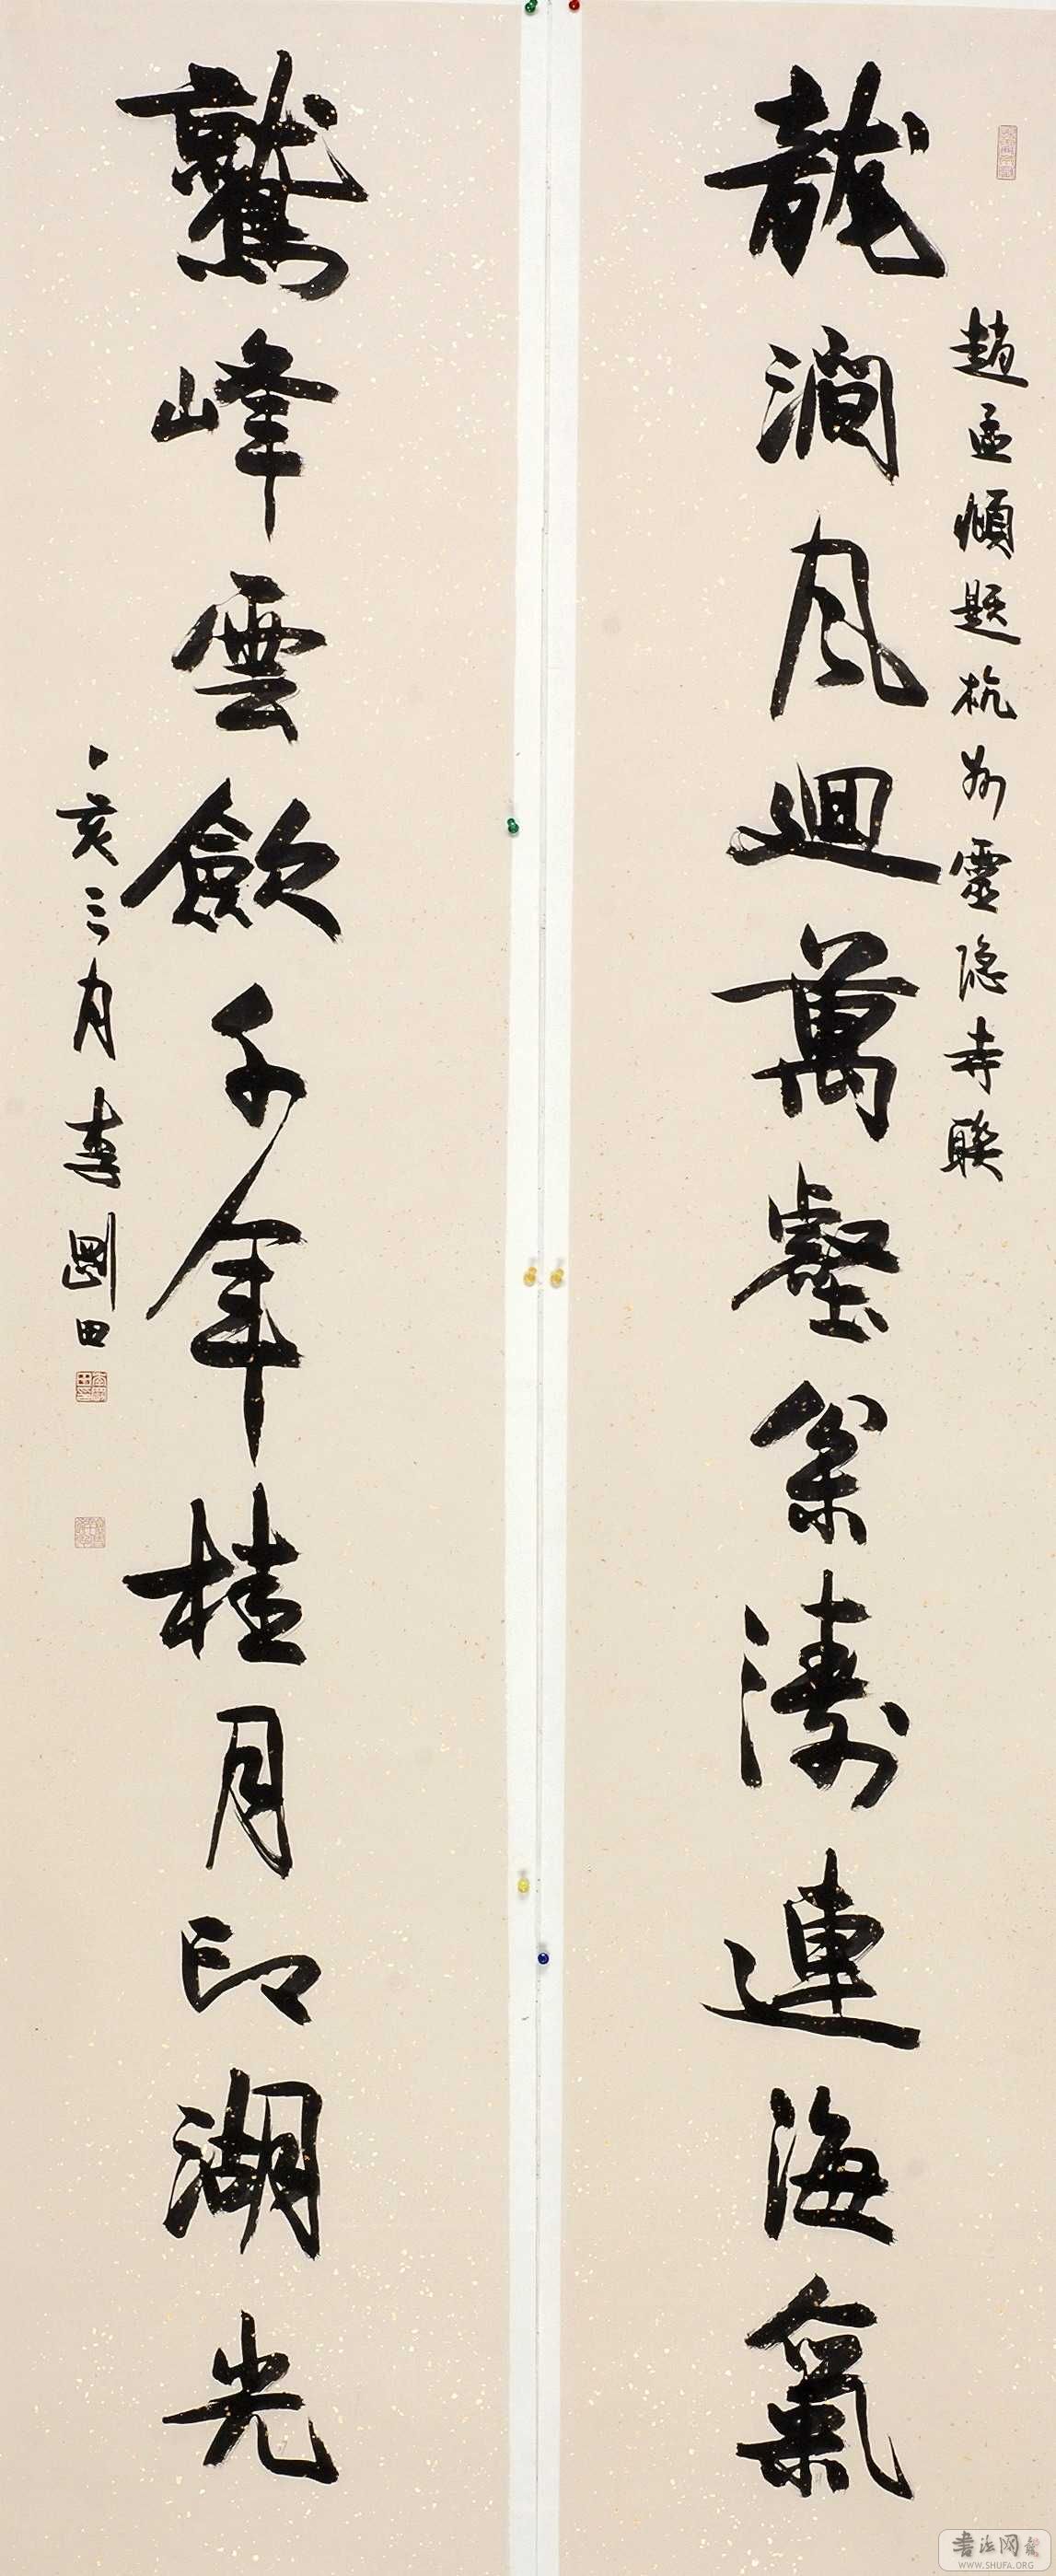 趙孟頫題杭州靈隐寺聯
龍澗風迴萬壑枀濤連海氣
鷲峰雲歛千年桂月印湖光
亥三月李剛田
书法网
WWW.SHUFA.ORG